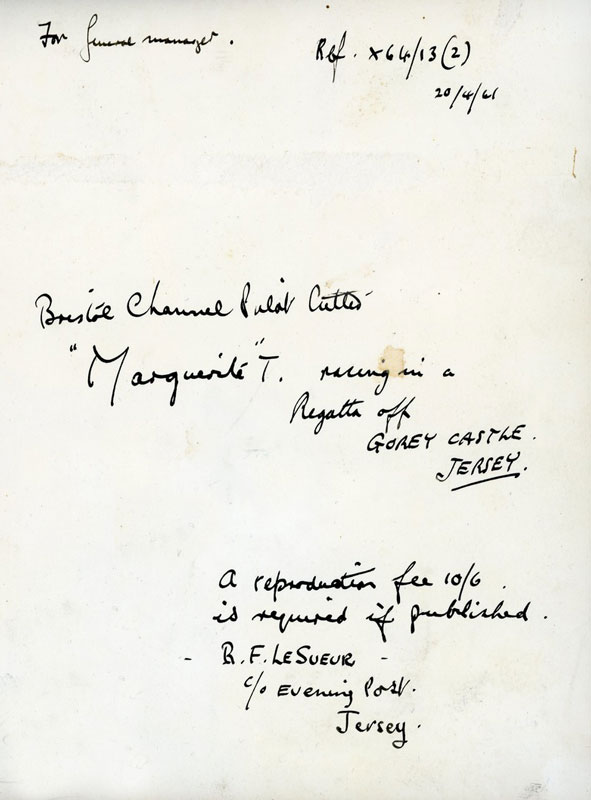 For General manager.
Ref. X64/13(2)
20/4/61
Bristol Channel Pilot Cutter
"Marguerite" T. racing in a
Regatta off
GOREY CASTLE.
JERSEY.
A reproduction fee 10/6
is required if published.
- R. F. LESUEUR -
c/o Evening Post.
Jersey.